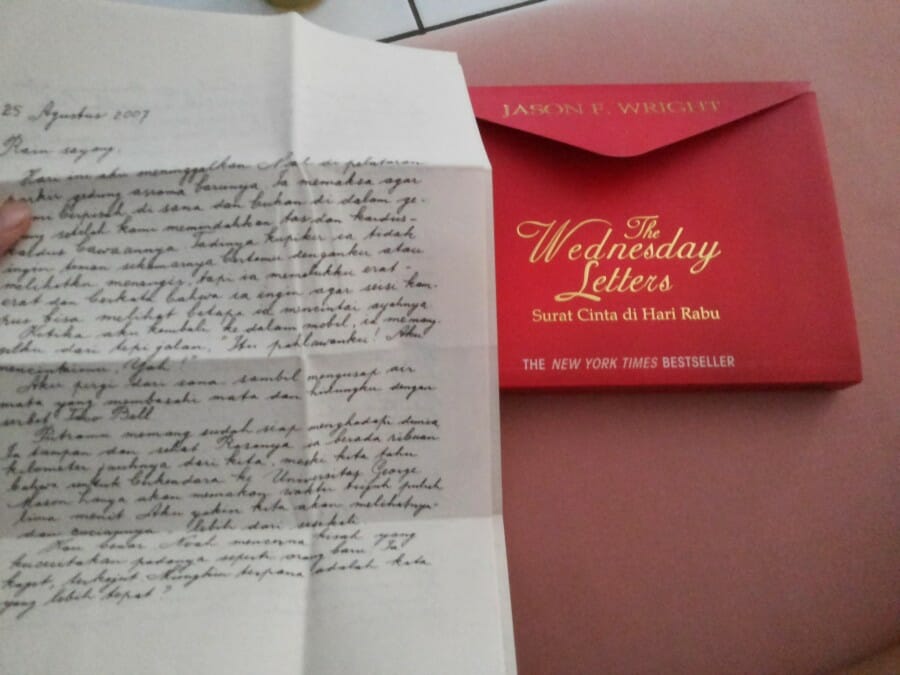 25 Agustus 2007
Rain sayang,
Hari ini aku meninggalkan Noah di pelataran
parkir gedung asrama barunya. Ia memaksa agar
kami berpisah di sana dan bukan di dalam ge-
setelah kami memindahkan tas dan kardus-
kardus bawaannya. Tadinya kupikir ia tidak
ingin teman sekamarnya bertemu denganku atau
melihatku menangis, tapi ia memelukku erat-
erat dan berkata bahwa ia ingin agar seisi kam-
pus bisa melihat betapa ia mencintai ayahnya.
Ketika aku kembali ke dalam mobil, ia memang-
gilku dari tepi jalan, "Itu pahlawanku! Aku
mencintaimu, Yah!"
Aku pergi dari sana sambil mengusap air
mata yang membasahi mata dan hidungku dengan
serbet Taco Bell.
Putramu memang sudah siap menghadapi dunia.
Ia tampan dan sehat. Rasanya ia berada ribuan
kilometer jauhnya dari kita, meski kita tahu
bahwa untuk berkendara ke Universitas George
Mason hanya akan memakan waktu tujuh puluh
lima menit. Aku yakin kita akan melihatnya-
dan cuciannya- lebih dari sesekali.
Kau benar. Noah mencerna kisah yang
kuceritakan padanya seperti orang baru. Ia
kaget, terkejut. Mungkin terpana adalah kata
yang lebih tepat?
JASON F. WRIGHT
The
Wednesday
Letters
Surat Cinta di Hari Rabu
THE NEW YORK TIMES BESTSELLER